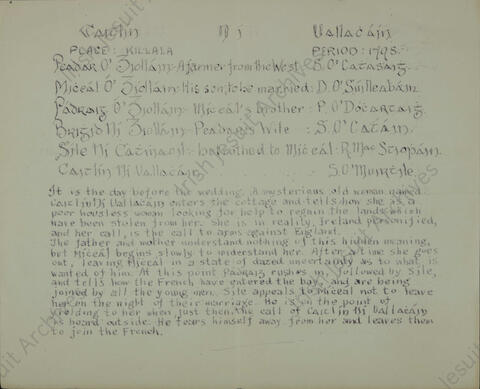 Caitlín Ní Uallacáin
PLACE: KILLALA PERIOD: 1798.
Peadar Ó Giolláin - A farmer from the West: S. O'Catasaig
Micéal Ó Giolláin - His son, to be married: D. O'Suilleabáin
Pádraig Ó Giolláin - Micéal's brother : P. O'Docartaig.
Brigid Ní Giolláin - Peadar's Wife : S. O'Catáin
Síle Ní - betrothed to Micéal - R. Mac Stiopáin
Caitlín Ní Uallacáin S. O'Muirtile
It is the day before the wedding. A mysterious old woman named
Caitlín Ní Uallacáin enters the cottage and tells how she is a
poor houseless woman looking for help to regain the lands which
have been stolen from her. She is in reality, Ireland personified,
and her call, is the call to arms against England.
The father and mother understand nothing of this hidden meaning,
but Micéal begins slowly to understand her. After a time she goes
out, leaving Micéal in a state of dazed uncertainty as to what is
wanted of him. At this point Pádraig rushes in, followed by Sile,
and tells how the French have entered the bay, and are being
joined by all the young men. Síle appeals to Micéal not to leave
her on the night of their marriage. He is on the point of
yielding to her when just then the call of Caitlín Ní Uallacáin
is heard outside. He tears himself away from her and leaves them
to join the French.
Irish Jesuit Archives